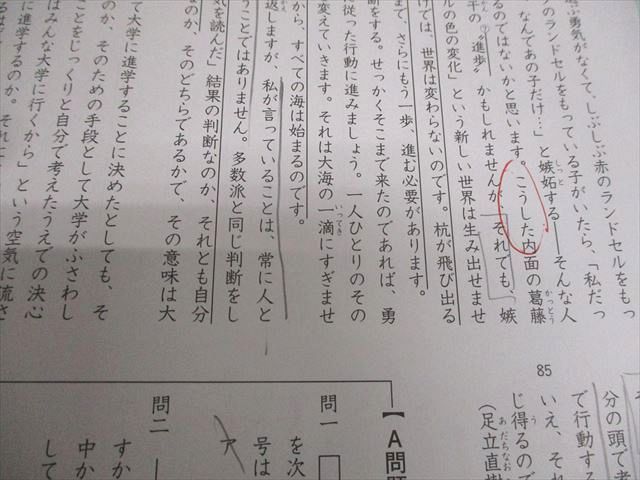 選ぶ勇気がなくて、しぶしぶ赤のランドセルをもっ
のランドセルをもっている子がいたら、「私だっ
、なんであの子だけ…」と嫉妬する――そんな人
るのではないかと思います。こうした内面の葛藤
平の〝進歩〟かもしれませんが、それでも、「嫉
ルの色の変化」という新しい世界は生み出せませ
けでは、世界は変わらないのです。杭が飛び出る
まで、さらにもう一歩、進む必要があります。
断をする。せっかくそこまで来たのであれば、勇
に従った行動に進みましょう。一人ひとりのその
変えていきます。それは大海の一滴にすぎませ
から、すべての海は始まるのです。
返しますが、私が言っていることは、常に人と
うことではありません。多数派と同じ判断をし
気を読んだ」結果の判断なのか、それとも自分
のか、そのどちらであるかで、その意味は大
て大学に進学することに決めたとしても、そ
のか、そのための手段として大学がふさわし
ことをじっくりと自分で考えたうえでの決心
はみんな大学に行くから」という空気に流さ
は進学するのか。それに
85
分の頭で考
で行動する
いえ、それ
じ得るので
(足立直樹
【A問題
問一
を次
号は
ア
問二
すか
中か
して